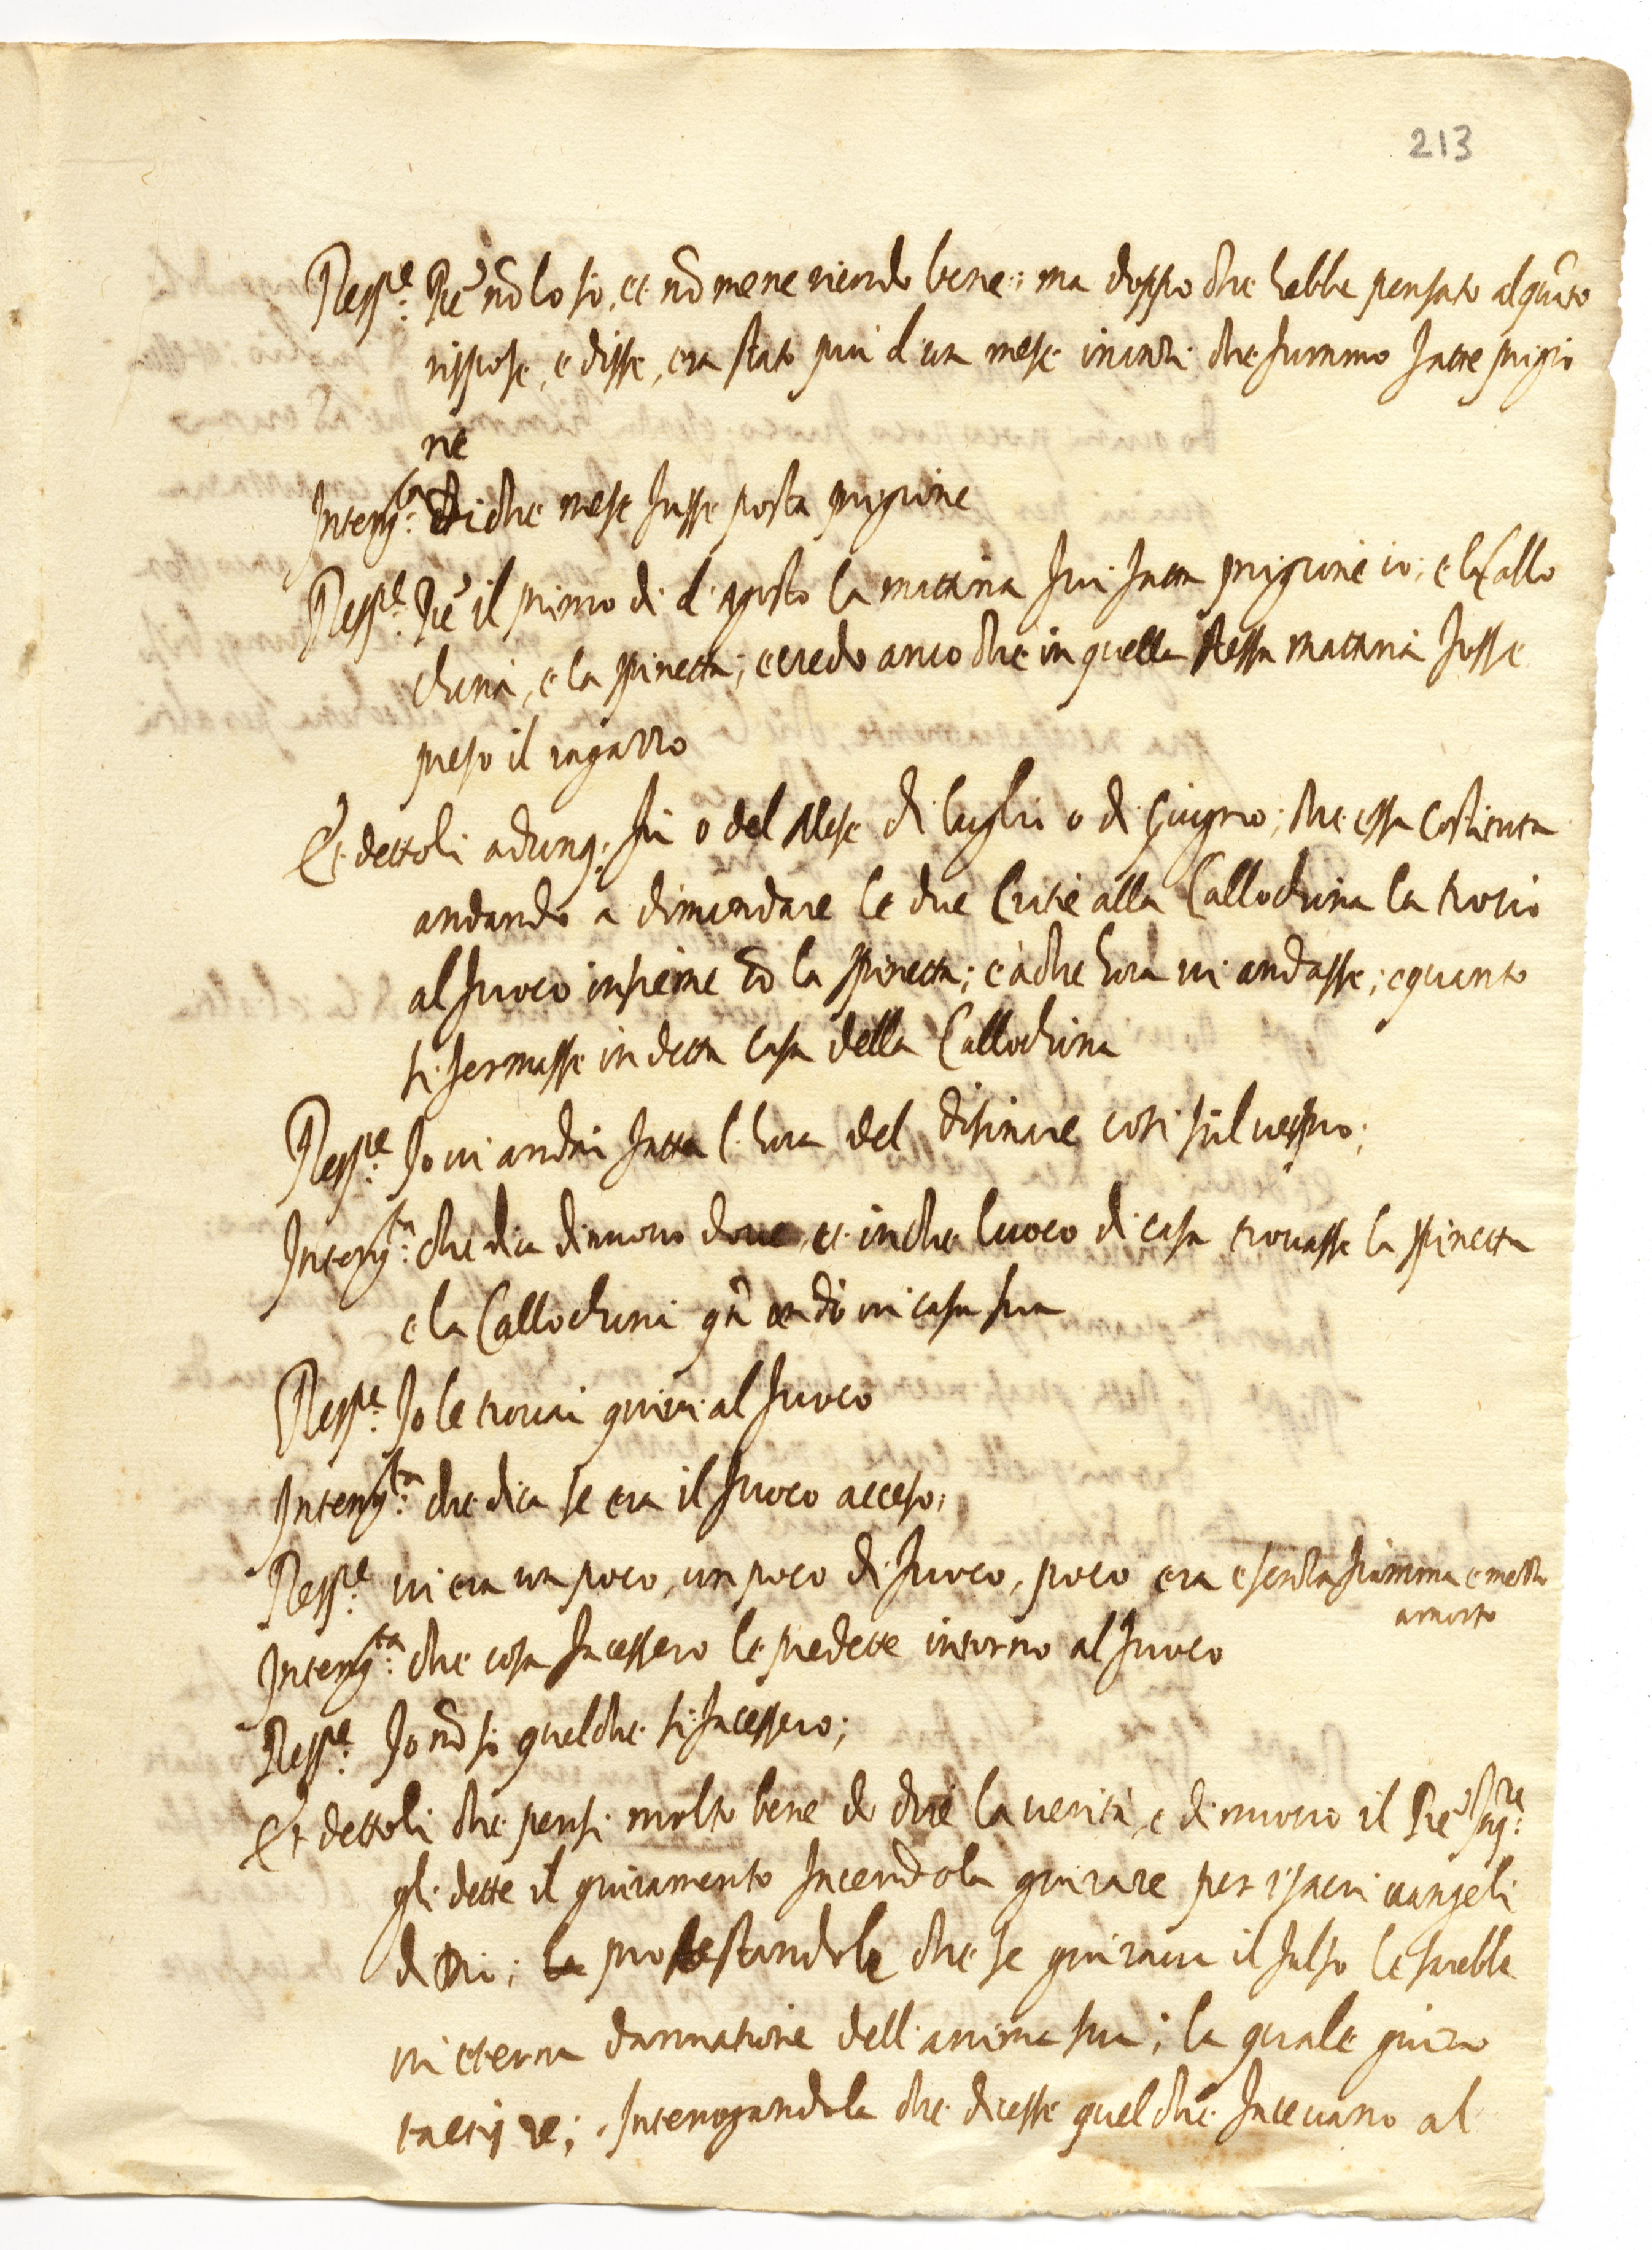 213
Resp.e Pre nõ lo so, et nõ mene ricordo bene; ma doppo che hebbe pensato alquãto
rispose, e disse, era stato piu d'un mese inanzi che fummo fatte prigio
ne
Interrg.ta di che mese fusse posta prigione
Resp.e Pre il primo di d'Agosto la mattina fui fatta prigione io; e la Callo
china, e la spinetta; e credo anco che in quella stessa mattina fosse
preso il ragazzo
Et dettoli adunq; fu o del Mese di luglio o di Giugno; che essa Costituta
andando a dimandare le due Crine alla Callochina la trovò
al fuoco insieme cõ la spinetta; e à che hora vi andasse; e quanto
si fermasse in detta casa della Callochina
Resp.e Io vi andai fatta l'hora del disinare cosi sul vespro;
Interrg.ta che dica di nuovo dove, et in che luoco di casa trovasse la spinetta
e la Callochina qñ andò in casa sua
Resp.e Io le trovai quivi al fuoco
Interrg.ta che dica se era il fuoco acceso;
Resp.e vi era un poco, un poco di fuoco, poco era e senza fiamma e mezzo
amorto
Interrg.ta che cosa facessero le predette intorno al fuoco
Resp.e Io nõ so quelche si facessero;
Et dettoli che pensi molto bene de dire la verità, e di nuovo il Pre Inq.re
gli dette il giuramento facendola giurare per i sacri vangeli
di Dio; la protestandole che se giurava il falso le sarebbe
in eterna dannatione dell'anima sua; la quale giurò
tactis &c; Interrogandola che dicesse quel che facevano al